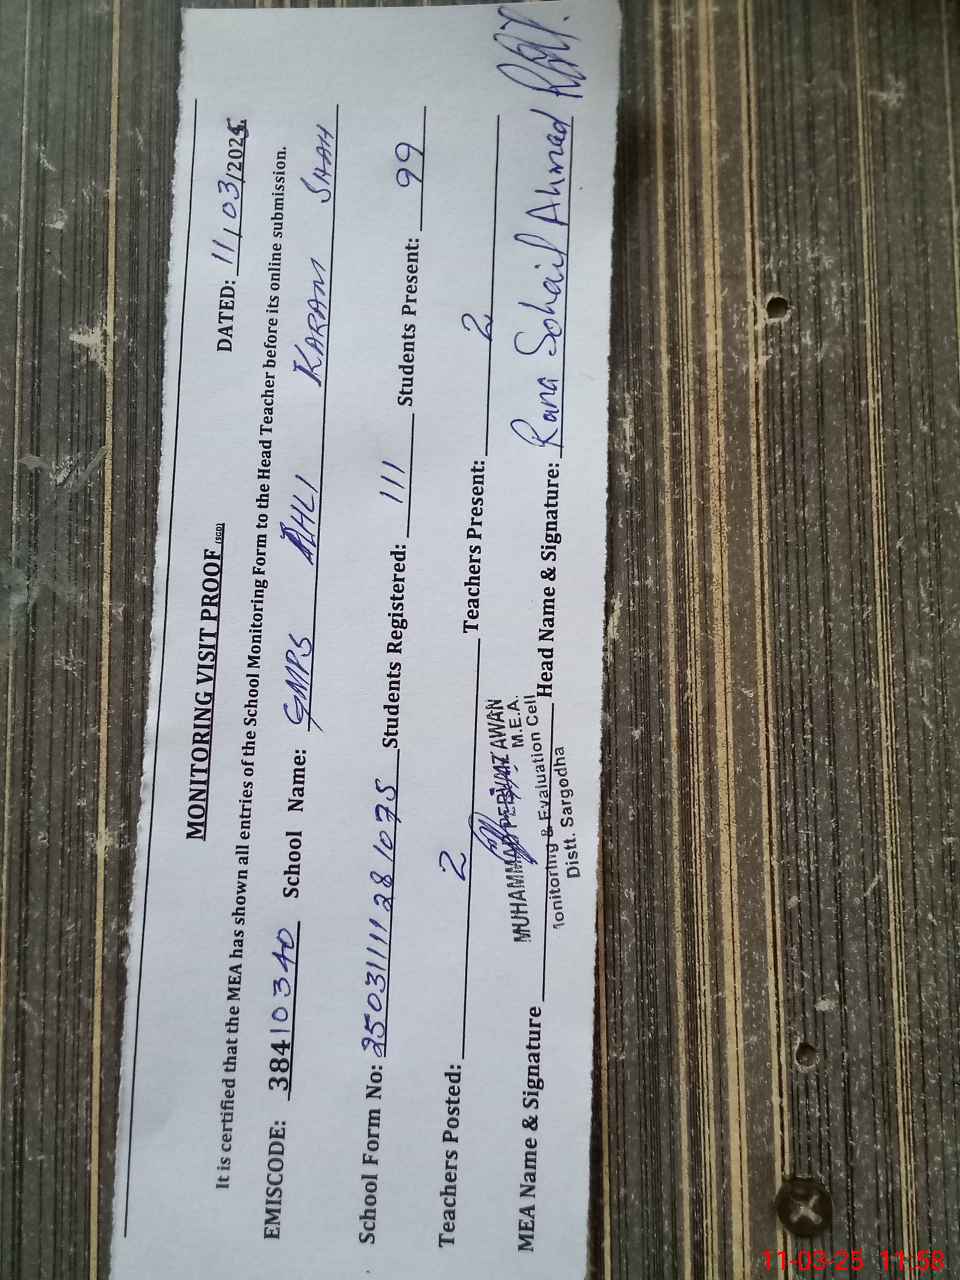 MONITORING VISIT PROOF (SGD)
DATED: 11/03/2025.
It is certified that the MEA has shown all entries of the School Monitoring Form to the Head Teacher before its online submission.
EMISCODE: 38410340 School Name: GMPS AHLI KARAM SHAH
School Form No: 25031111281075 Students Registered: 111 Students Present: 99
Teachers Posted: 2 Teachers Present: 2
MEA Name & Signature Head Name & Signature: Rana Sohail Ahmad
MUHAMMAD PERVAIZ AWAN
M.E.A.
Monitoring & Evaluation Cell
Distt. Sargodha
11-03-25 11:58